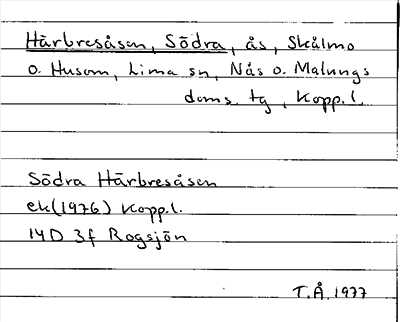 Härbresåsen, Södra, ås, Skålmo
o. Husom, Lima sn, Nås o. Malungs
doms. tg, Kopp.l.
Södra Härbresåsen
ek(1976) Kopp.l.
14D 3f Rogsjön
T.Å. 1977